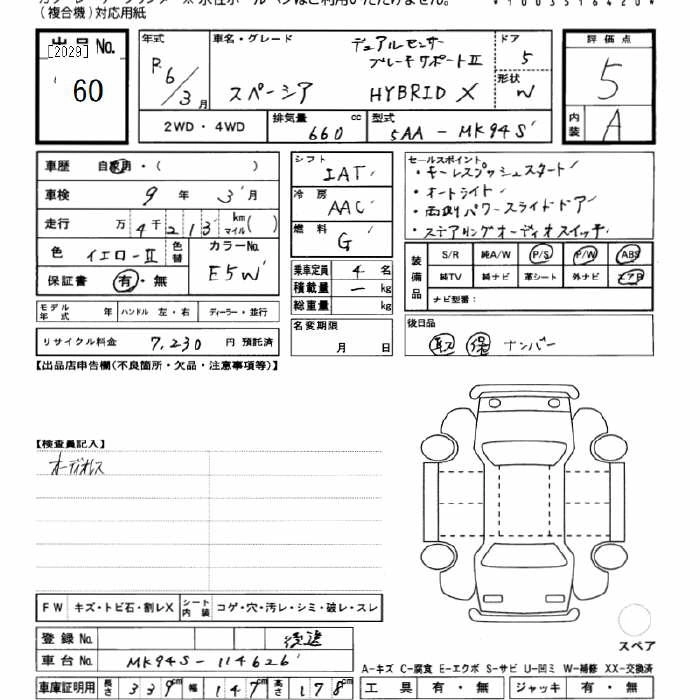 (複合機)対応用紙
出品 No.
[2029]
60
年式
R6/3月
車名・グレード
スペーシア
デュアルセンサー
ブレーキサポートⅡ
HYBRID X
ドア
5
形状
W
評価点
5
内装
A
2WD・4WD
排気量
660 cc
型式
5AA-MK94S
車歴 自家用・( )
車検 9年 3月
走行 万 4千 2 1 3 km マイル ( )
色 イエロー-Ⅱ
色替
カラーNo.
E5W
保証書 有・無
モデル年式 年 ハンドル 左・右 ディーラー・並行
リサイクル料金 7,230 円 預託済
シフト
IAT
冷房
AAC
燃料
G
乗車定員 4 名
積載量 ー kg
総重量 kg
名変期限
月 日
セールスポイント
・キーレスプッシュスタート
・オートライト
・両側パワースライドドア
・ステアリングオーディオスイッチ
装備品
S/R 純A/W P/S P/W ABS
純TV 純ナビ 革シート 外ナビ エアB
ナビ型番:
後日品
取 保 ナンバー
【出品店申告欄(不良箇所・欠品・注意事項等)】
【検査員記入】
オーディオレス
FW キズ・トビ石・割レX シート内装 コゲ・穴・汚レ・シミ・破レ・スレ
登録 No. 後送
車台 No. MK94S-114626
車庫証明用 長さ 339cm 幅 147cm 高さ 178cm
スペア
A-キズ C-腐食 E-エクボ S-サビ U-凹ミ W-補修 XX-交換済
工具 有・無 ジャッキ 有・無